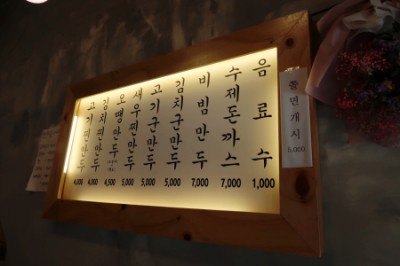 고기찐만두 4,000
김치찐만두 4,000
만두 4,500
새우찐만두 5,000
고기군만두 5,000
김치군만두 5,000
비빔만두 7,000
수제돈까스 7,000
음료수 1,000
쫄면개시 5,000